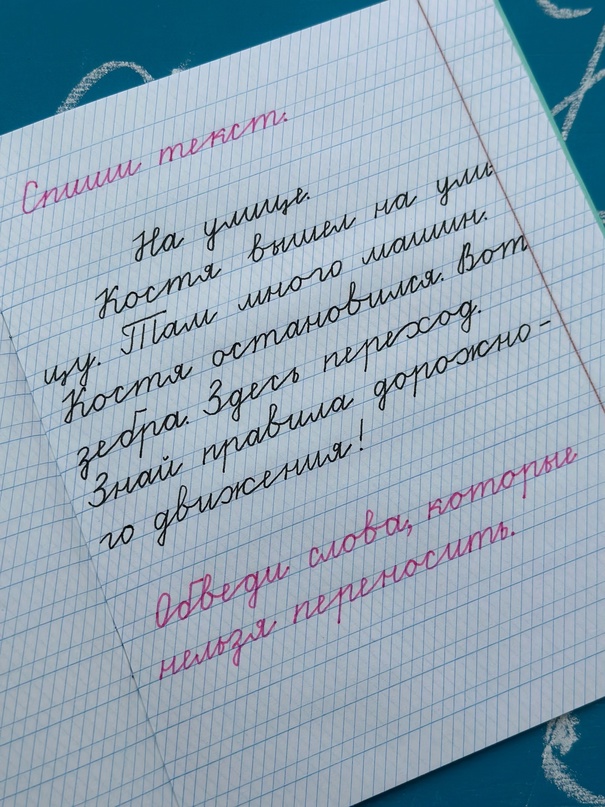 Спиши текст.
На улице.
Костя вышел на ули-
цу. Там много машин.
Костя остановился. Вот
зебра. Здесь переход.
Знай правила дорожно-
го движения!
Обведи слова, которые
нельзя переносить.